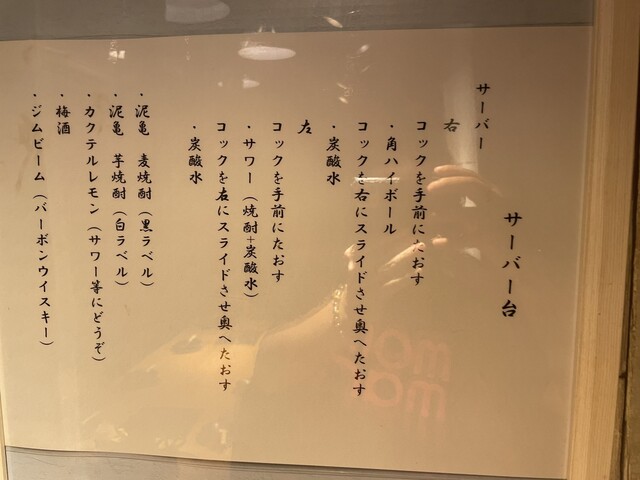 サーバー台
サーバー
右
コックを手前にたおす
・角ハイボール
コックを右にスライドさせ奥へたおす
・炭酸水
左
コックを手前にたおす
・サワー（焼酎+炭酸水）
コックを右にスライドさせ奥へたおす
・炭酸水
・泥亀 麦焼酎（黒ラベル）
・泥亀 芋焼酎（白ラベル）
・カクテルレモン（サワー等にどうぞ）
・梅酒
・ジムビーム（バーボンウイスキー）